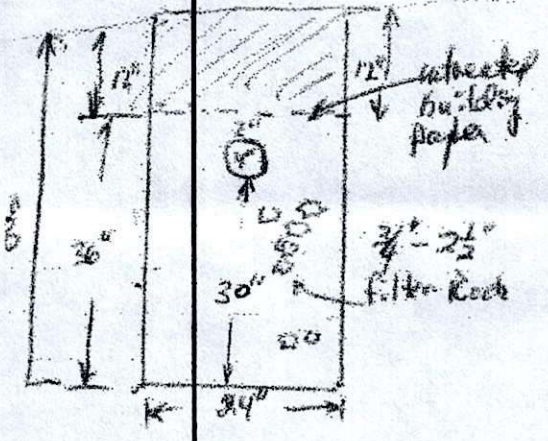 12"
12"
untreated
building
paper
2"
4"
36"
30"
3/4" - 2 1/2"
filter Rock
24"